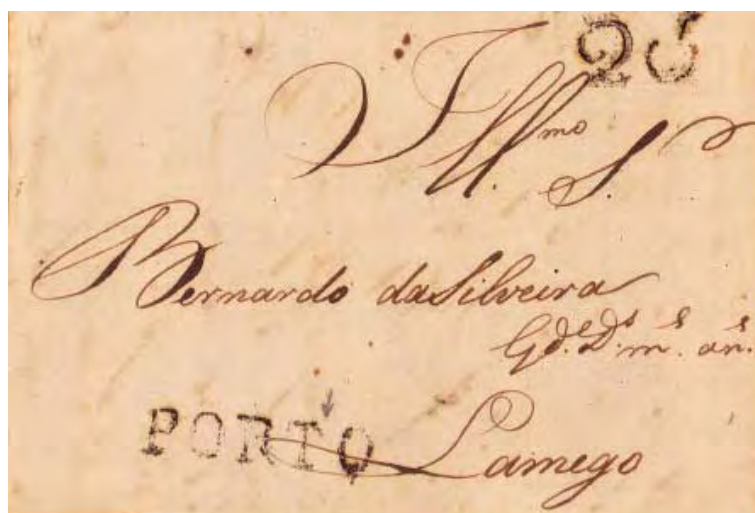 25
Ill.mo S.r
Bernardo da Silveira
G.de D.s m.s an.s
PORTO Lamego